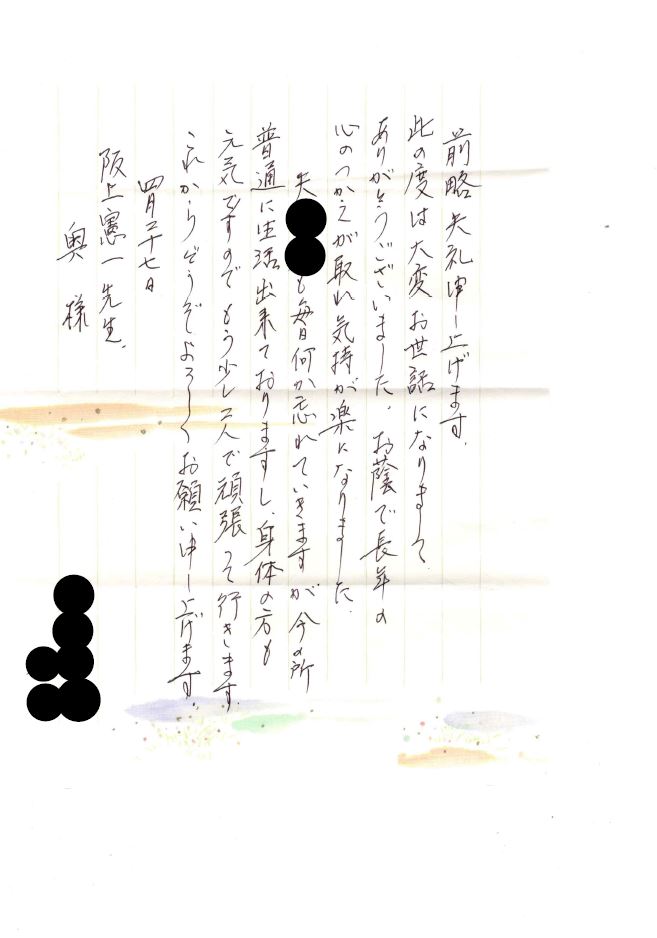 前略 失礼申し上げます。
此の度は大変お世話になりまして
ありがとうございました。お蔭で長年の
心のつかえが取れ気持が楽になりました。
夫
も毎日何か忘れていきますが今の所
普通に生活出来ておりますし、身体の方も
元気ですのでもう少し二人で頑張って行きます。
これからもどうぞよろしくお願い申し上げます。
四月二十七日
阪上憲一先生
奥 様